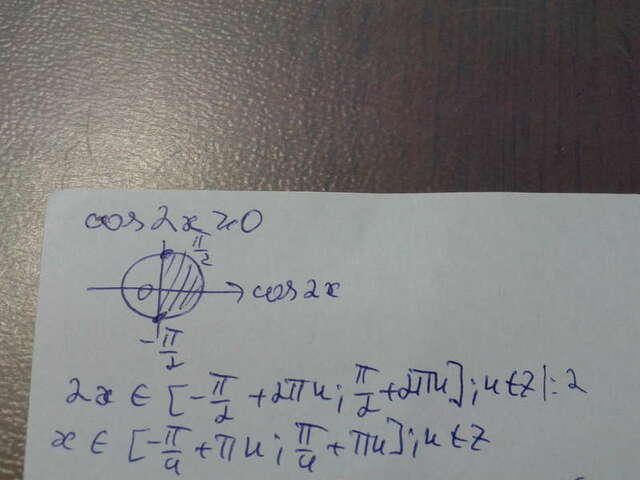 cos2x≥0
π/2
0
cos2x
-π/2
2x ∈ [-π/2 + 2πn; π/2 + 2πn]; n∈Z |:2
x ∈ [-π/4 + πn; π/4 + πn]; n∈Z